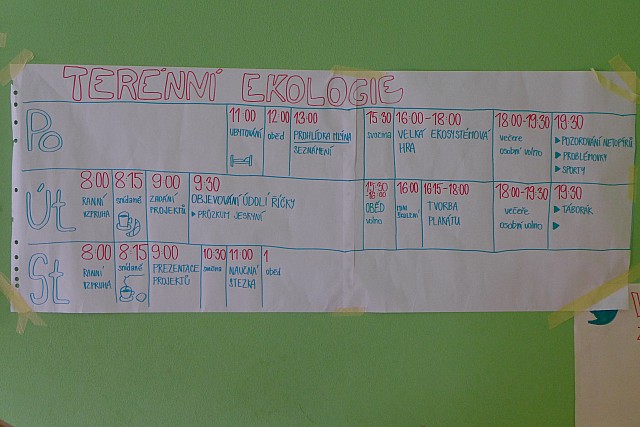 TERÉNNÍ EKOLOGIE
Po
11:00
UBYTOVÁNÍ
12:00
oběd
13:00
PROHLÍDKA MLÝNA
SEZNÁMENÍ
15:30
svačina
16:00-18:00
VELKÁ EKOSYSTÉMOVÁ
HRA
18:00-19:30
večeře
osobní volno
19:30
POZOROVÁNÍ NETOPÝRŮ
PROBLÉMOVKY
SPORTY
Út
8:00
RANNÍ
VZPRUHA
8:15
snídaně
9:00
ZADÁNÍ
PROJEKTŮ
9:30
OBJEVOVÁNÍ ÚDOLÍ ŘÍČKY
PRŮZKUM JESKYNÍ
15:30
-16:00
OBĚD
volno
16:00
MINI
ŠKOLENÍ
16:15-18:00
TVORBA
PLAKÁTU
18:00-19:30
večeře
osobní volno
19:30
TÁBORÁK
St
8:00
RANNÍ
VZPRUHA
8:15
snídaně
9:00
PREZENTACE
PROJEKTŮ
10:30
svačina
11:00
NAUČNÁ
STEZKA
1
oběd